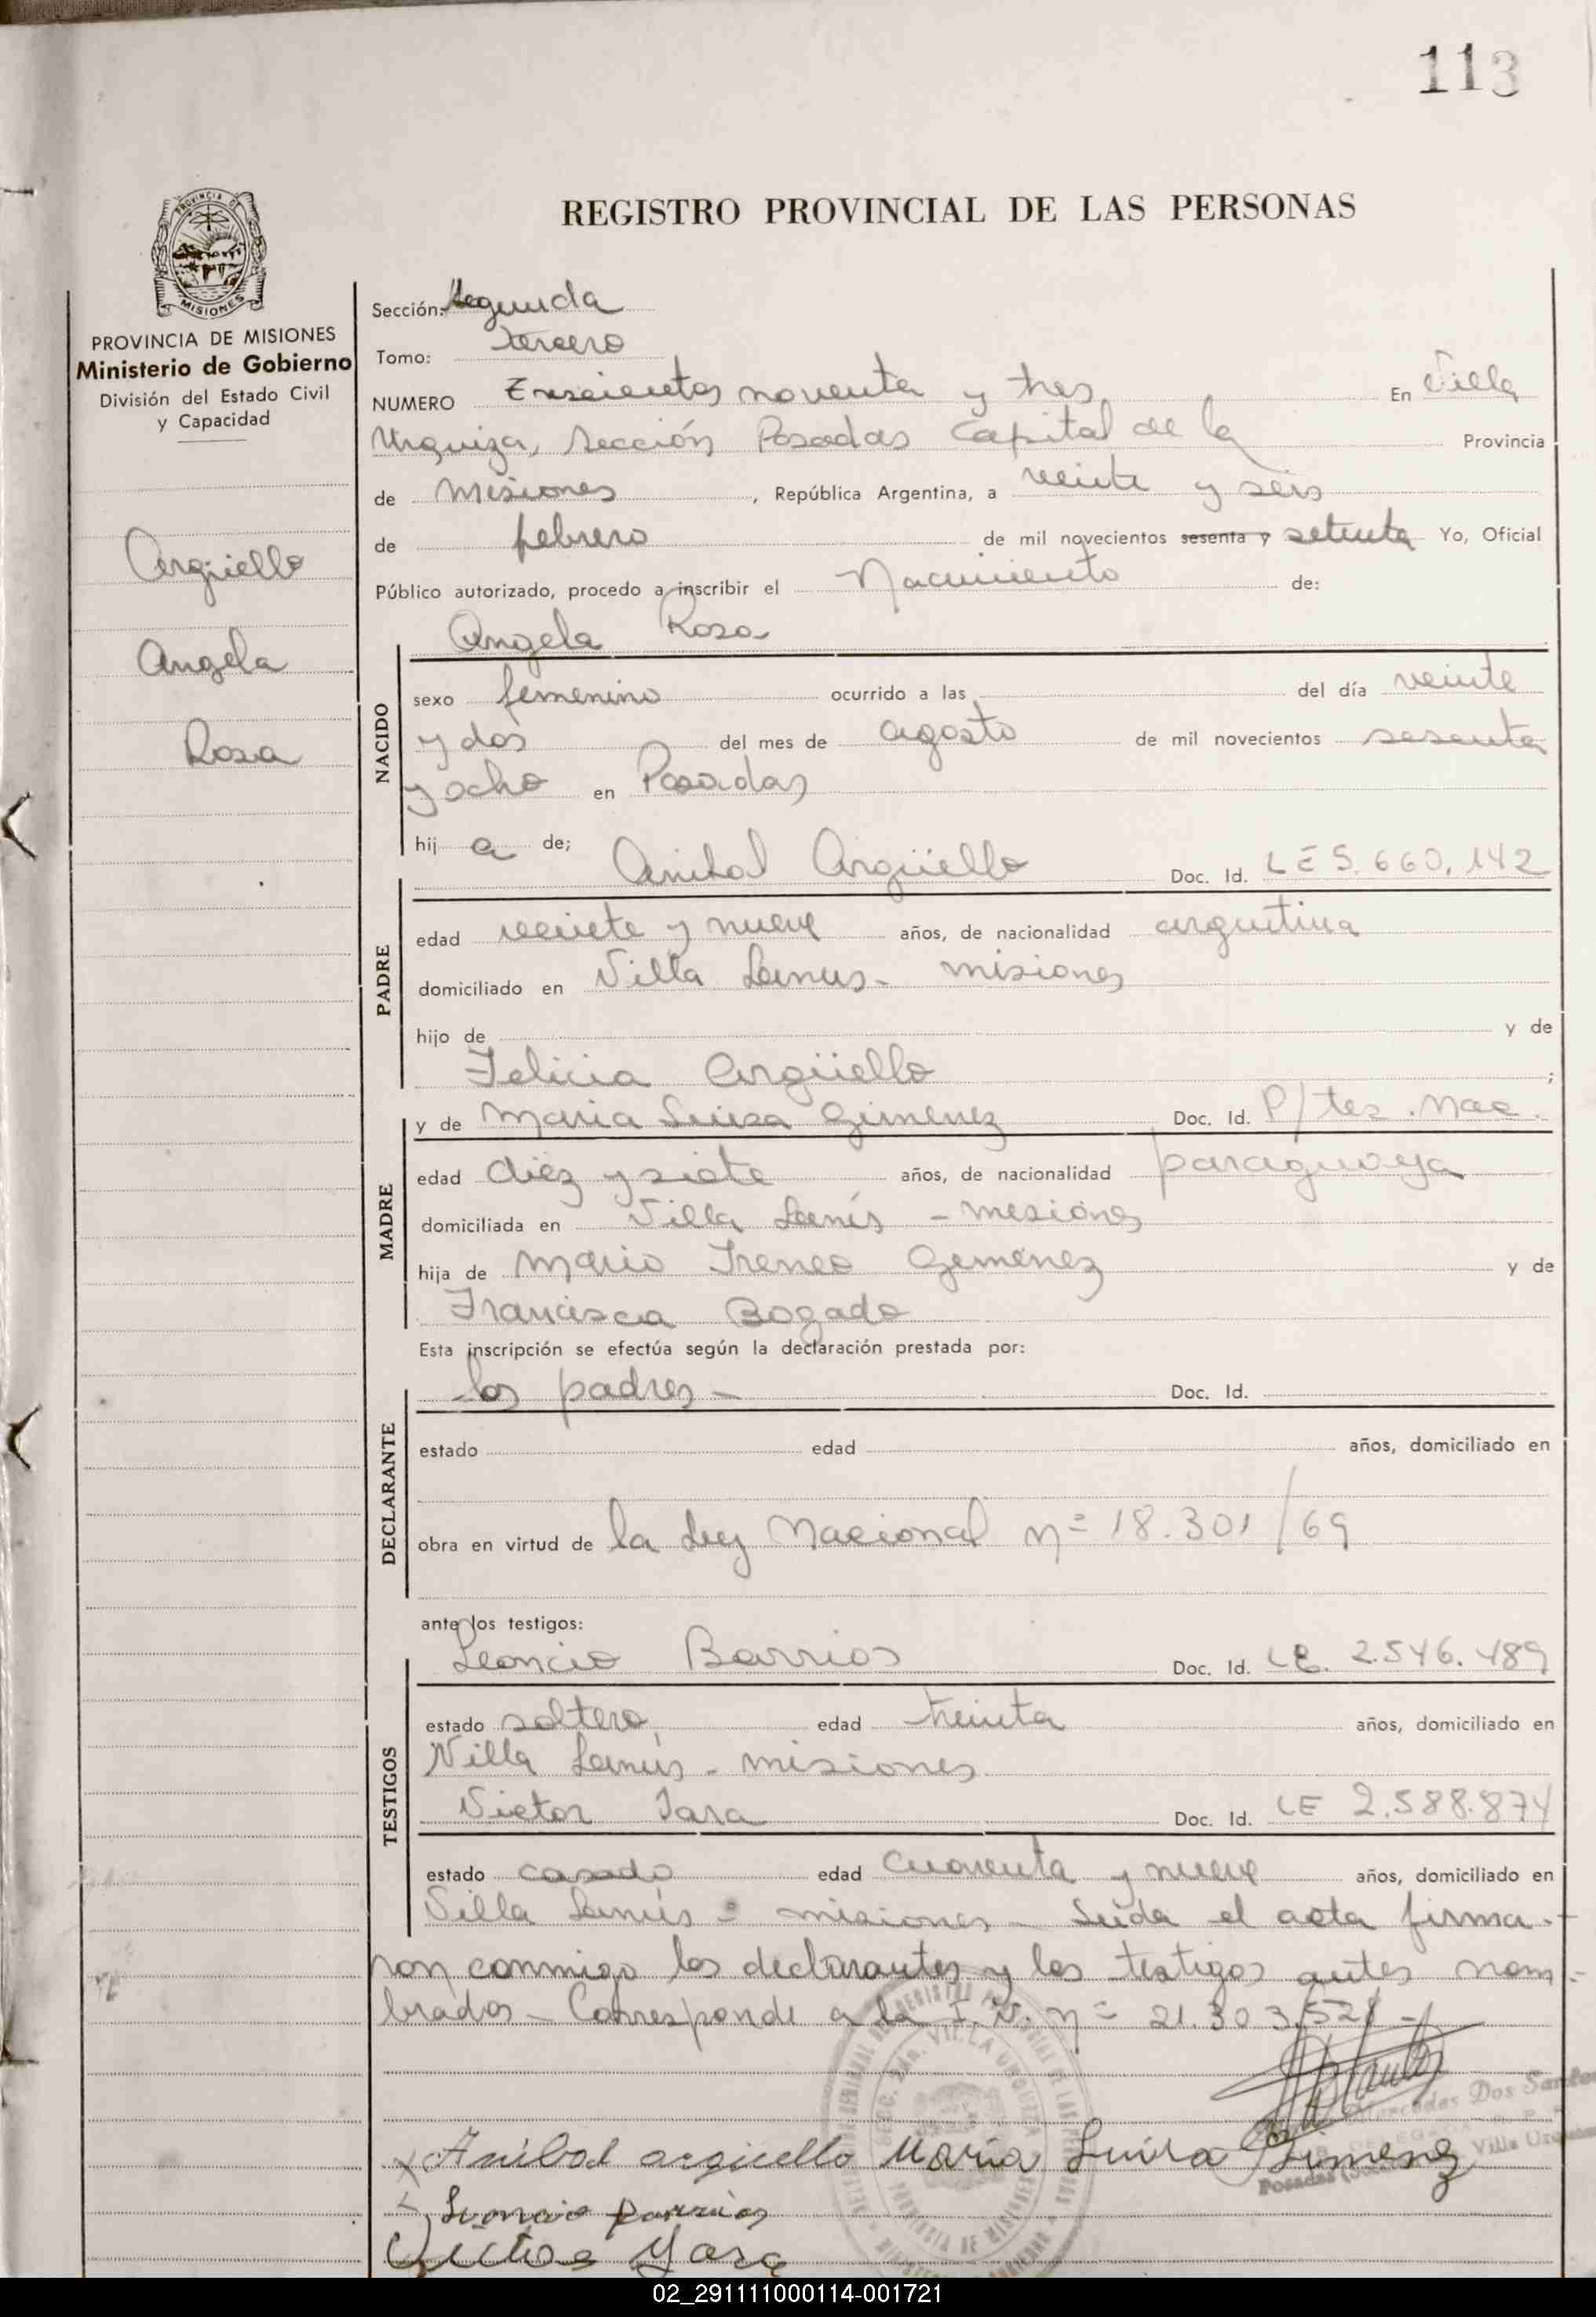 113
REGISTRO PROVINCIAL DE LAS PERSONAS
PROVINCIA DE MISIONES
Ministerio de Gobierno
División del Estado Civil
y Capacidad
Argüello
Angela
Rosa
Sección: Segunda
Tomo: tercero
NUMERO Trescientos noventa y tres En Villa
Urquiza, Sección Posadas Capital de la Provincia
de Misiones, República Argentina, a veinte y seis
de febrero de mil novecientos sesenta y setenta Yo, Oficial
Público autorizado, procedo a inscribir el Nacimiento de:
Angela Rosa
NACIDO
sexo femenino ocurrido a las del día veinte
y dos del mes de agosto de mil novecientos sesenta
y ocho en Posadas
hij a de;
Anibal Argüello Doc. Id. LE 5.660.142
PADRE
edad veinte y nueve años, de nacionalidad argentina
domiciliado en Villa Lanus - misiones
hijo de y de
Felicia Argüello ;
y de Maria Luisa Gimenez Doc. Id. P/ tez. Nac.
MADRE
edad diez y siete años, de nacionalidad paraguaya
domiciliada en Villa Lanús - misiones
hija de Mario Ireneo Gimenez y de
Francisca Bogado
Esta inscripción se efectúa según la declaración prestada por:
los padres - Doc. Id.
DECLARANTE
estado edad años, domiciliado en
obra en virtud de la Ley Nacional nº 18.301/69
ante los testigos:
Leoncio Barrios Doc. Id. LE. 2.546.489
TESTIGOS
estado soltero edad treinta años, domiciliado en
Villa Lanús - misiones
Victor Jara Doc. Id. LE 2.588.874
estado casado edad cuarenta y nueve años, domiciliado en
Villa Lanús - misiones - Leida el acta firma-
ron conmigo los declarantes y los testigos antes nom-
brados - Corresponde a la I.N. nº 21.303.521 -
Mercedes Dos Santos
Anibal argüello Maria Luisa Gimenez
Leoncio Barrios
Victor Yara
02_291111000114-001721